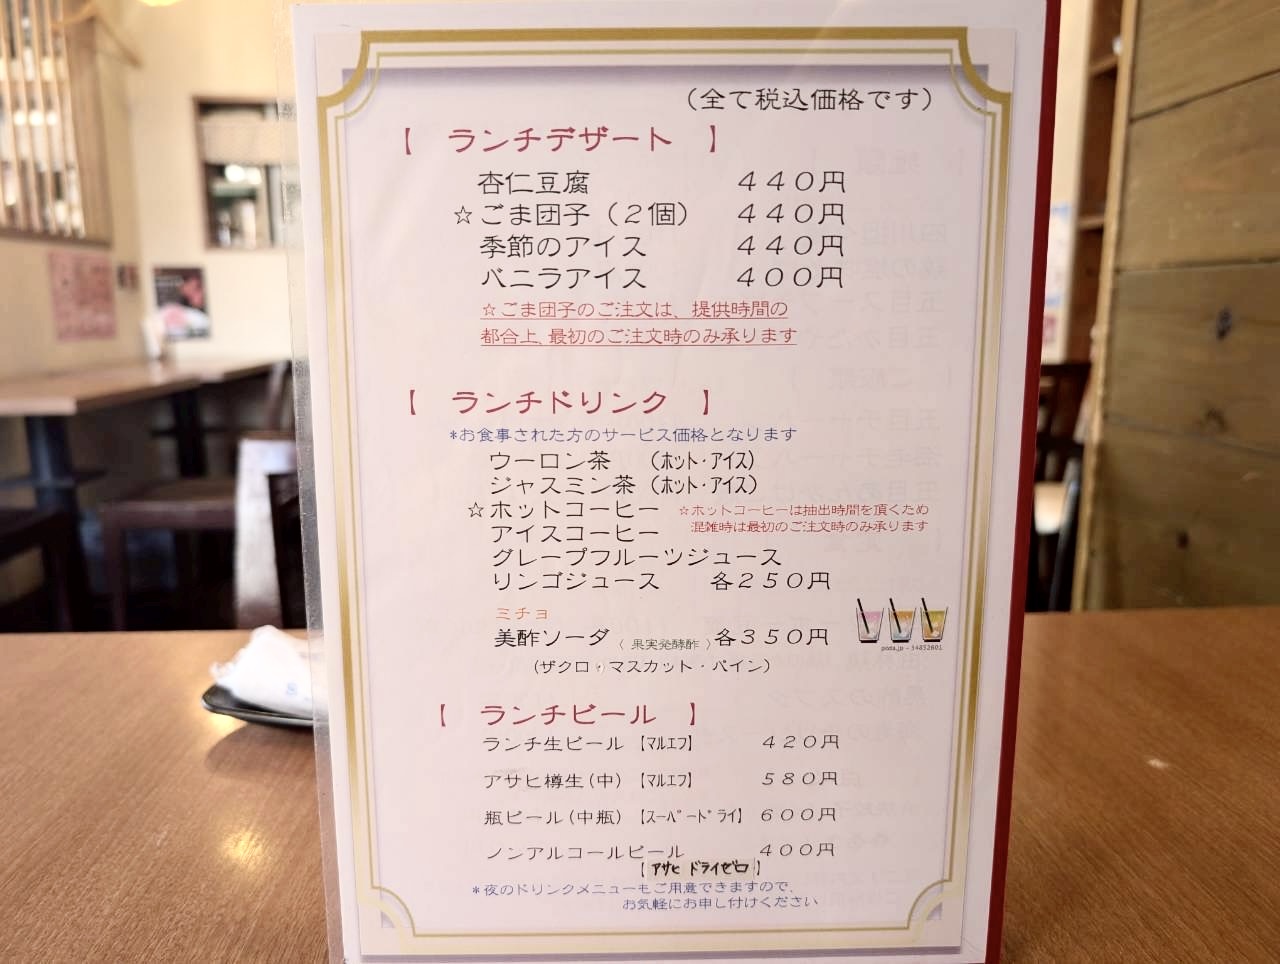 （全て税込価格です）
【 ランチデザート 】
杏仁豆腐 ４４０円
☆ごま団子（２個） ４４０円
季節のアイス ４４０円
バニラアイス ４００円
☆ごま団子のご注文は、提供時間の
都合上、最初のご注文時のみ承ります
【 ランチドリンク 】
*お食事された方のサービス価格となります
ウーロン茶 （ﾎｯﾄ･ｱｲｽ）
ジャスミン茶（ﾎｯﾄ･ｱｲｽ）
☆ホットコーヒー ☆ホットコーヒーは抽出時間を頂くため
混雑時は最初のご注文時のみ承ります
アイスコーヒー
グレープフルーツジュース
リンゴジュース 各２５０円
ミチョ
美酢ソーダ〈 果実発酵酢 〉各３５０円
（ザクロ・マスカット・パイン）
poda.jp - 34852601
【 ランチビール 】
ランチ生ビール【ﾏﾙｴﾌ】 ４２０円
アサヒ樽生(中)【ﾏﾙｴﾌ】 ５８０円
瓶ビール(中瓶)【ｽｰﾊﾟｰﾄﾞﾗｲ】 ６００円
ノンアルコールビール ４００円
【アサヒ ドライゼロ】
*夜のドリンクメニューもご用意できますので、
お気軽にお申し付けください